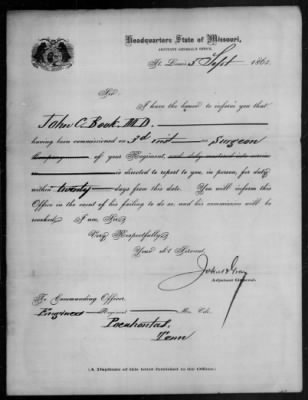 Headquarters State of Missouri,
ADJUTANT GENERAL'S OFFICE,
St. Louis 5 Sept 186
Sir
I have the honor to inform you that
John C. Book M.D.
having been commissioned on 3d inst Surgeon
Company of your Regiment, and duly mustered into service
is directed to report to you, in person, for duty
within twenty days from this date. You will inform this
Office in the event of his failing to do so, and his commission will be
revoked. I am, Sir,
Very Respectfully
Your obt Servant,
Adjutant General.
To Commanding Officer
Engineer Regiment Mo. Vols.
Pocahontas,
Tenn
(A Duplicate of this letter furnished to the Officer.)